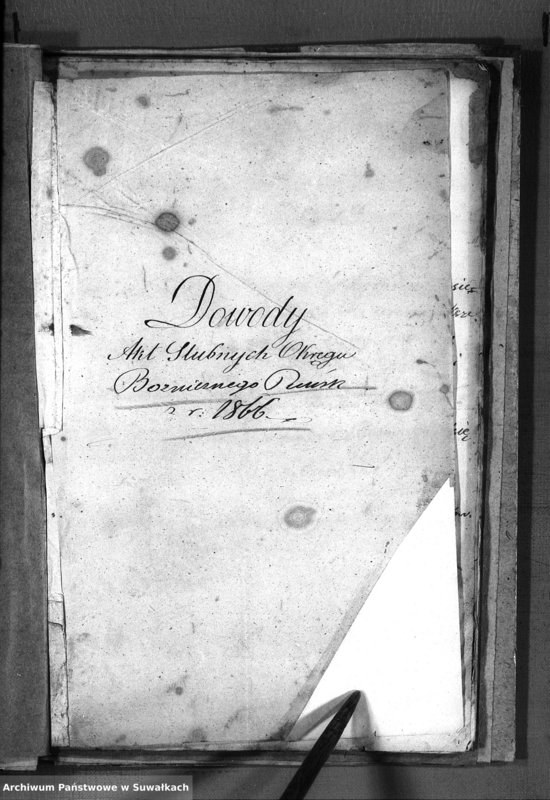 Dowody
Akt Slubnych Okręgu
Bożniczego
z r. 1866.
Archiwum Państwowe w Suwałkach